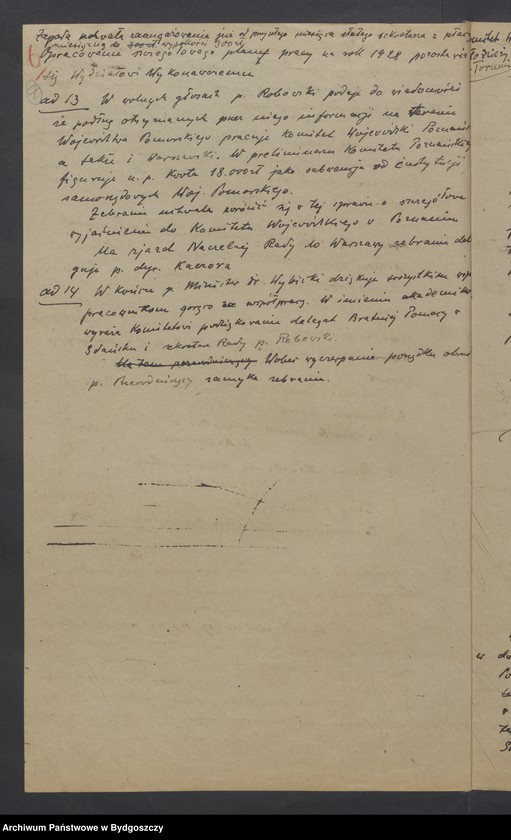 Zapada uchwała zaangażowanie już od przyszłego miesiąca stałego sekretarza z płacą
miesięczną do wysokości 300 zł
Opracowanie szczegółowego planu pracy na rok 1928 pozosta
się Wydziałowi Wykonawczemu
ad 13 W wolnych głosach p. Robowski podaje do wiadomości
że podług otrzymanych przez niego informacji na terenie
Województwa Pomorskiego pracuje Komitet Wojewódzki Poznański
a także i Warszawski. W preliminarzu Komitetu Poznańskiego
figuruje n.p. kwota 18.000 zł jako subwencja od instytucji
samorządowych Woj. Pomorskiego.
Zebranie uchwala zwrócić się w tej sprawie o szczegółowe
wyjaśnienie do Komitetu Wojewódzkiego w Poznaniu
Na zjazd Naczelnej Rady do Warszawy zebranie dele
guje p. dyr.
ad 14 W końcu p. Minister dr. Wybicki dziękuje wszystkim współ
pracownikom gorąco za współpracę. W imieniu akademików
wyraża Komitetowi podziękowanie delegat Bratniej Pomocy w
Gdańsku i Rady p. Robowski.
Wobec wyczerpania porządku obrad
p. Przewodniczący zamyka zebranie.
Archiwum Państwowe w Bydgoszczy